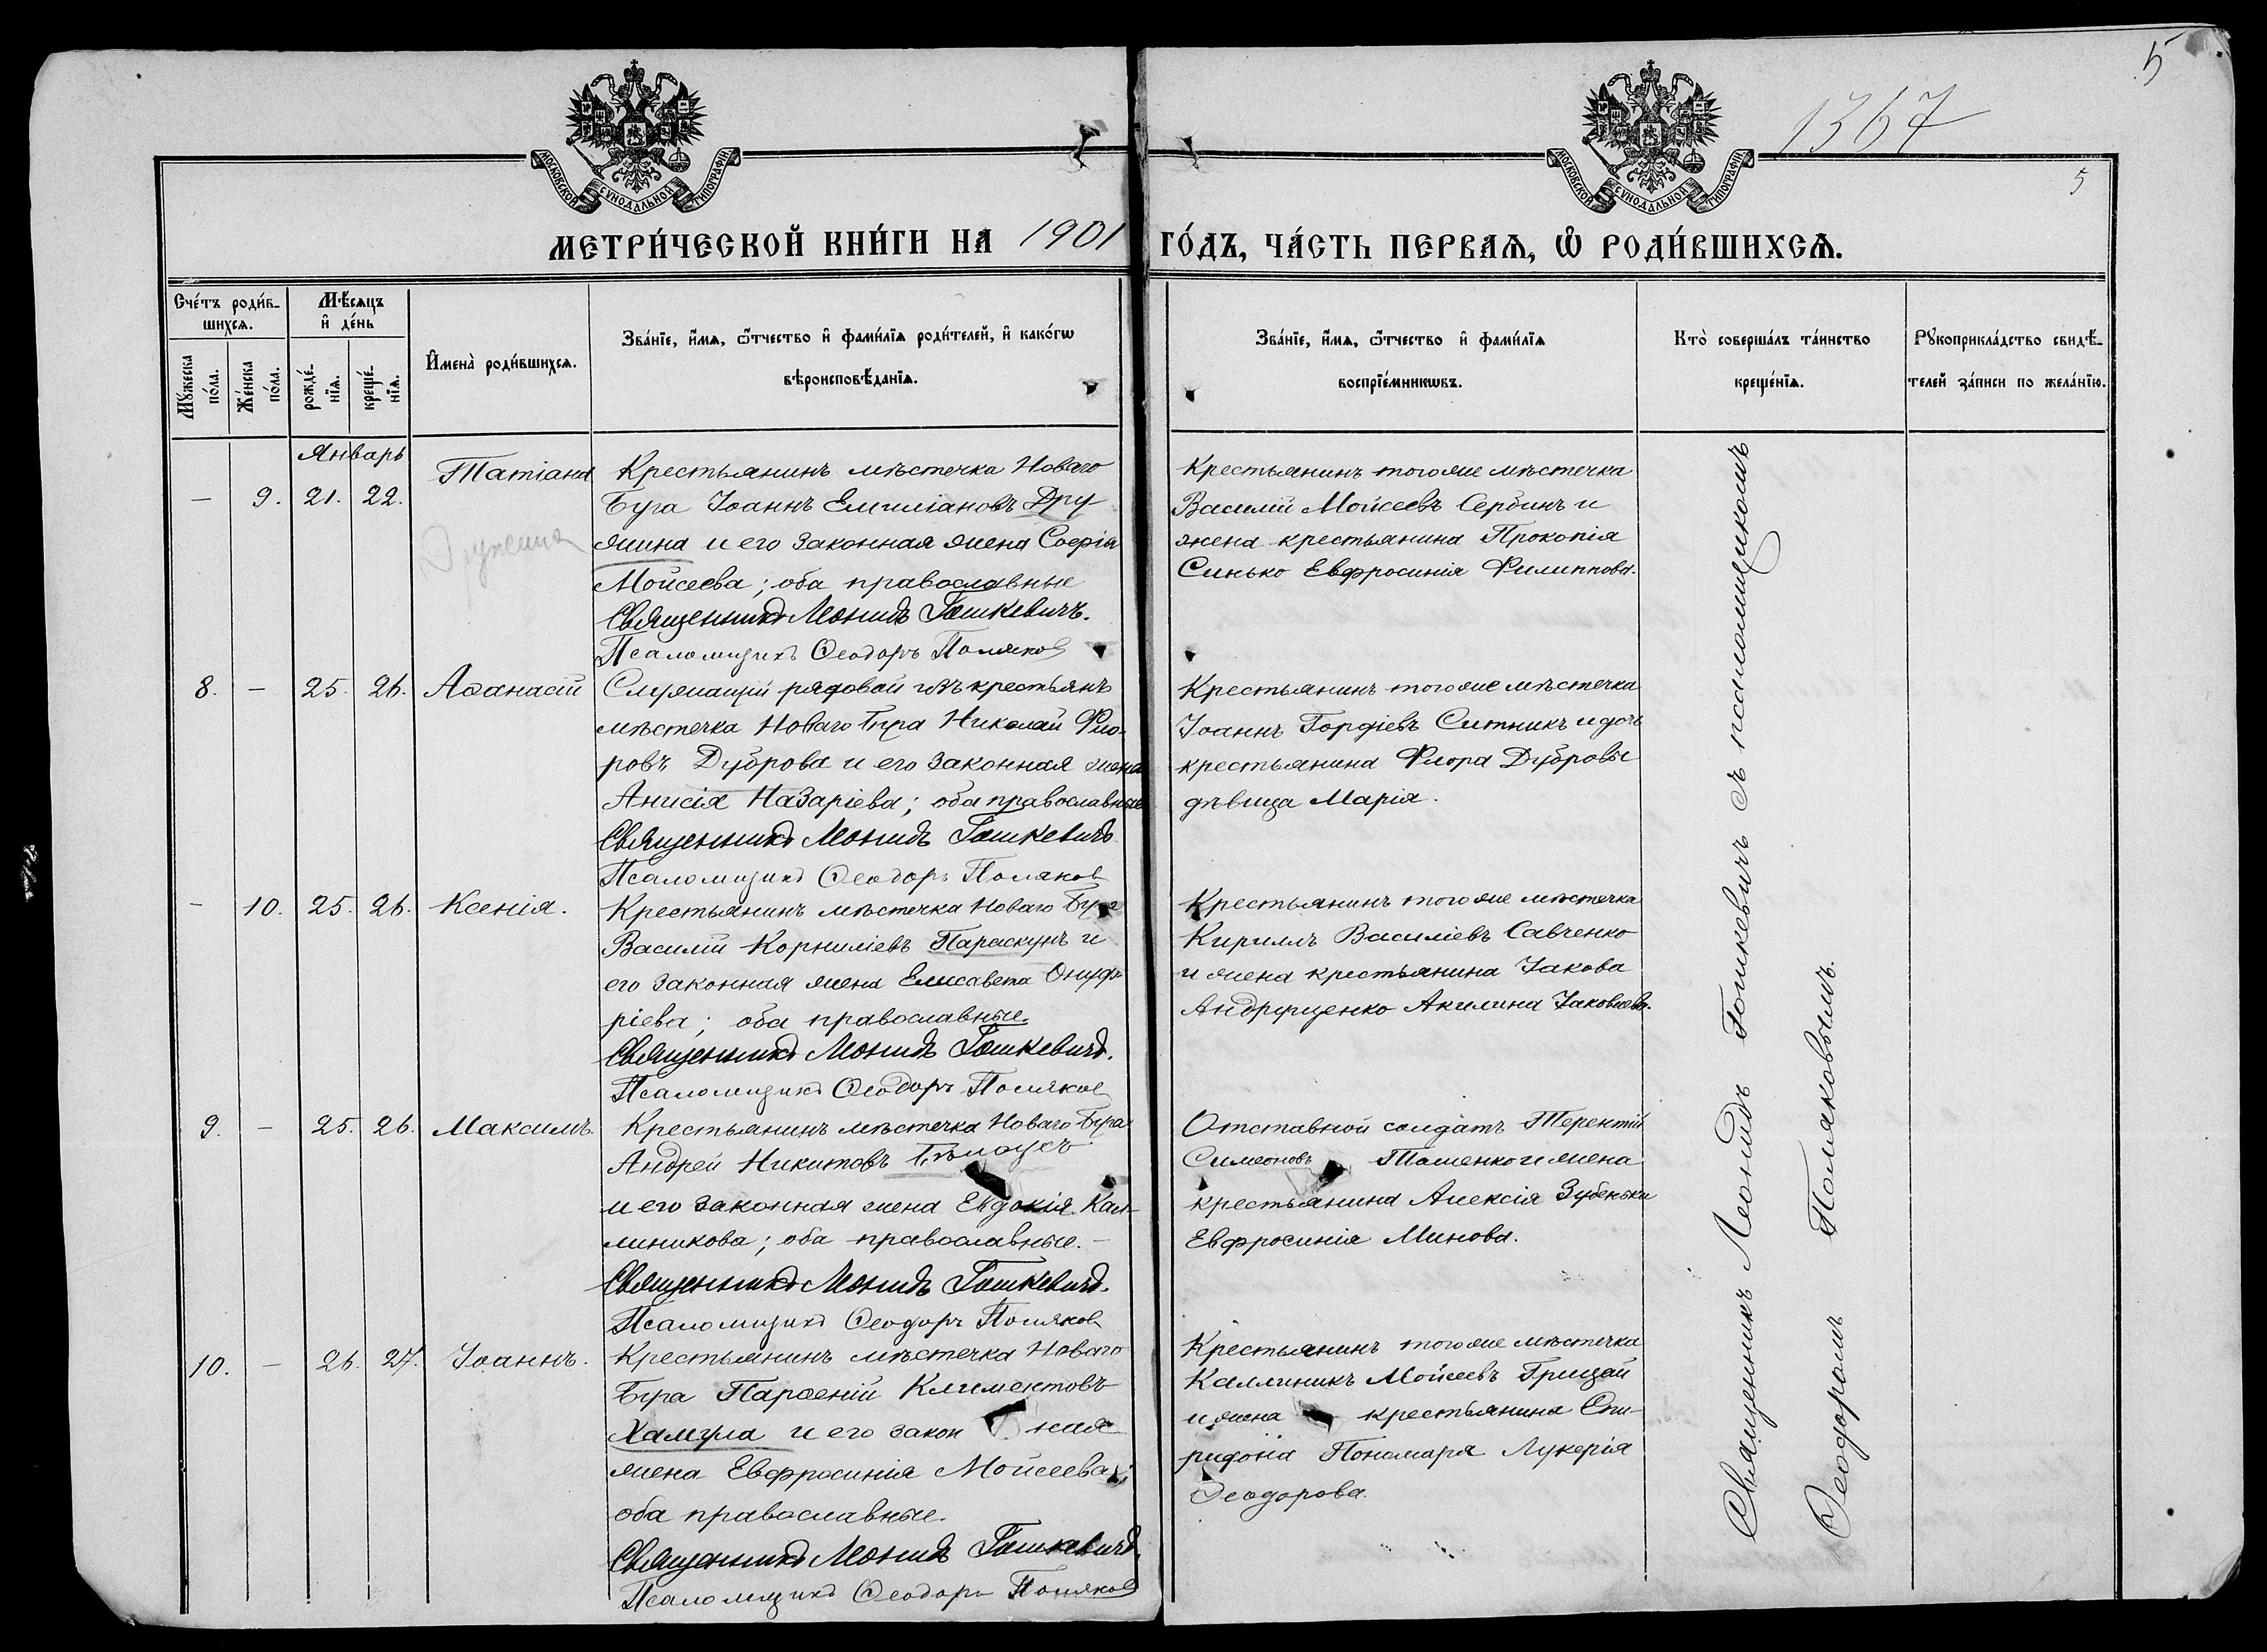 5
1367
5
МОСКОВСКОЙ СУНОДАЛЬНОЙ ТИПОГРАФІИ
МОСКОВСКОЙ СУНОДАЛЬНОЙ ТИПОГРАФІИ
МЕТРИ́ЧЕСКОЙ КНИ́ГИ НА 1901 ГО́ДЪ, ЧА́СТЬ ПЕРВАѦ, Ѡ҆ РОДИ́ВШИХСѦ.
Сче́тъ роди́в-
шихсѧ.
Мꙋ́жеска
по́ла.
Же́нска
по́ла.
Мѣ́сѧцъ
и҆ де́нь
рожде́-
нїѧ.
креще́-
нїѧ.
И҆мена̀ роди́вшихсѧ.
Зва́нїе, и҆́мѧ, ѻ҆́тчество и҆ фами́лїѧ роди́телей, и҆ како́гѡ
вѣроисповѣ́данїѧ.
Зва́нїе, и҆́мѧ, ѻ҆́тчество и҆ фами́лїѧ
воспрїе́мникѡвъ.
Кто̀ соверша́лъ та́инство
креще́нїѧ.
Рꙋкоприкла́дство свидѣ́-
телей за́писи по жела́нїю.
Январь
— 9. 21. 22.
Татіана
Дружина
Крестьянинъ мѣстечка Новаго
Буга Іоаннъ Емиліановъ Дру
жина и его законная жена Софія
Мойсеева; оба православные
Священникъ Леонидъ Гошкевичъ.
Псаломщикъ Ѳеодоръ Поляковъ
Крестьянинъ тогоже мѣстечка
Василій Мойсеевъ Сербинъ и
жена крестьянина Прокопія
Синько Евфросинія Филиппова.
8. — 25. 26. Аѳанасій
Служащій рядовой изъ крестьянъ
мѣстечка Новаго Буга Николай Фло-
ровъ Дуброва и его законная жена
Анисія Назаріева; оба православные
Священникъ Леонидъ Гошкевичъ
Псаломщикъ Ѳеодоръ Поляковъ
Крестьянинъ тогоже мѣстечка
Іоаннъ Гордіевъ Ситникъ и дочь
крестьянина Флора Дубровы
дѣвица Марія.
— 10. 25. 26. Ксенія.
Крестьянинъ мѣстечка Новаго Буга
Василій Корниліевъ Параскунъ и
его законная жена Елисавета Онуф-
ріева; оба православные.
Священникъ Леонидъ Гошкевичъ.
Псаломщикъ Ѳеодоръ Поляковъ
Крестьянинъ тогоже мѣстечка
Кириллъ Василіевъ Савченко
и жена крестьянина Іакова
Андрущенко Акилина Іаковлева.
9. — 25. 26. Максимъ.
Крестьянинъ мѣстечка Новаго Буга
Андрей Никитовъ
и его законная жена Евдокія Кал-
линикова; оба православные. —
Священникъ Леонидъ Гошкевичъ.
Псаломщикъ Ѳеодоръ Поляковъ
Отставной солдатъ Терентій
Симеоновъ и жена
крестьянина Алексія Зубенька
Евфросинія Минова.
10. — 26. 27. Іоаннъ.
Крестьянинъ мѣстечка Новаго
Буга Парѳеній Климентовъ
Хамула и его закон ная
жена Евфросинія Мойсеева;
оба православные.
Священникъ Леонидъ Гошкевичъ.
Псаломщикъ Ѳеодоръ Поляковъ
Крестьянинъ тогоже мѣстечка
Каллиникъ Мойсеевъ Грицай
и жена крестьянина Спи-
ридона Пономаря Лукерія
Ѳеодорова.
Священникъ Леонидъ Гошкевичъ съ псаломщикомъ
Ѳеодоромъ Поляковымъ.